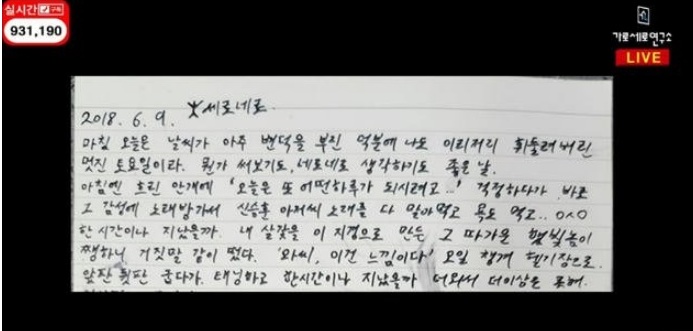 실시간 구독
931,190
가로세로연구소
LIVE
2018. 6. 9. 세로네로.
마침 오늘은 날씨가 아주 변덕을 부린 덕분에 나도 이리저리 휘둘려버린
멋진 토요일이라. 뭔가 써보기도, 네로네로 생각하기도 좋은 날.
아침엔 흐린 안개에 '오늘은 또 어떤하루가 되시려고..' 걱정하다가 바로
그 감성에 노래방가서 신승훈 아저씨 노래를 다 말아먹고 목도 먹고.. 0^0
한시간이나 지났을까. 내 살갗을 이 지경으로 만든 그 따가운 햇빛놈이
쨍하니 거짓말 같이 떴다. '와씨, 이건 느낌이다' 오일 챙겨 헬기장으로.
앞판 뒷판 굽다가. 태닝하고 한시간이나 지났을까 더워서 더이상은 못해.